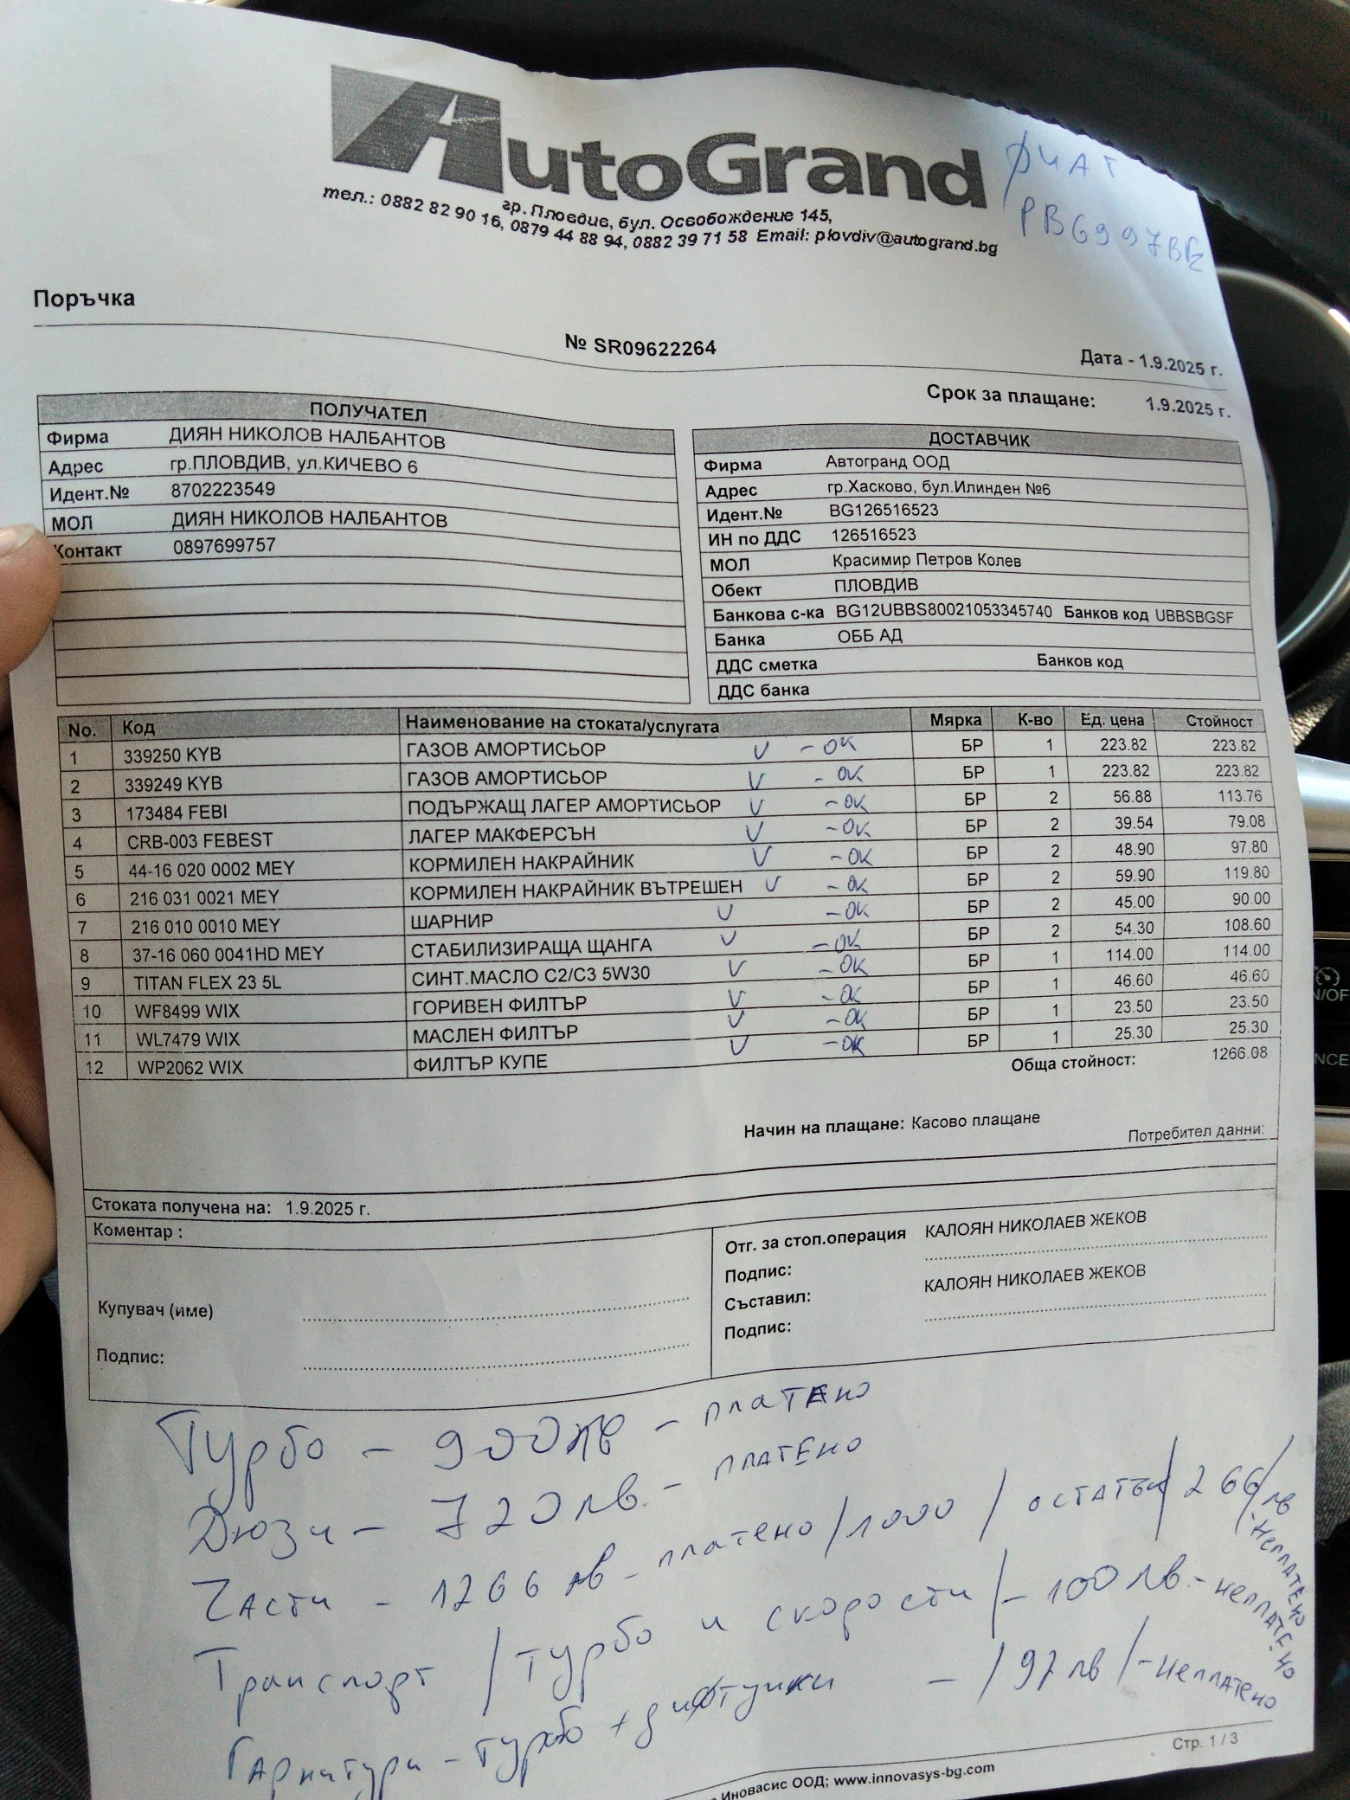 AutoGrand
гр. Пловдив, бул. Освобождение 145,
тел.: 0882 82 90 16, 0879 44 88 94, 0882 39 71 58 Email: plovdiv@autogrand.bg
фиат
РВ6997ВЕ
Поръчка
№ SR09622264
Дата - 1.9.2025 г.
Срок за плащане: 1.9.2025 г.
ПОЛУЧАТЕЛ
Фирма ДИЯН НИКОЛОВ НАЛБАНТОВ
Адрес гр.ПЛОВДИВ, ул.КИЧЕВО 6
Идент.№ 8702223549
МОЛ ДИЯН НИКОЛОВ НАЛБАНТОВ
Контакт 0897699757
ДОСТАВЧИК
Фирма Автогранд ООД
Адрес гр.Хасково, бул.Илинден №6
Идент.№ BG126516523
ИН по ДДС 126516523
МОЛ Красимир Петров Колев
Обект ПЛОВДИВ
Банкова с-ка BG12UBBS80021053345740 Банков код UBBSBGSF
Банка ОББ АД
ДДС сметка Банков код
ДДС банка
No. Код Наименование на стоката/услугата Мярка К-во Ед. цена Стойност
1 339250 KYB ГАЗОВ АМОРТИСЬОР V - ОК БР 1 223.82 223.82
2 339249 KYB ГАЗОВ АМОРТИСЬОР V - ОК БР 1 223.82 223.82
3 173484 FEBI ПОДЪРЖАЩ ЛАГЕР АМОРТИСЬОР V - ОК БР 2 56.88 113.76
4 CRB-003 FEBEST ЛАГЕР МАКФЕРСЪН V - ОК БР 2 39.54 79.08
5 44-16 020 0002 MEY КОРМИЛЕН НАКРАЙНИК V - ОК БР 2 48.90 97.80
6 216 031 0021 MEY КОРМИЛЕН НАКРАЙНИК ВЪТРЕШЕН V - ОК БР 2 59.90 119.80
7 216 010 0010 MEY ШАРНИР V - ОК БР 2 45.00 90.00
8 37-16 060 0041HD MEY СТАБИЛИЗИРАЩА ЩАНГА V - ОК БР 2 54.30 108.60
9 TITAN FLEX 23 5L СИНТ.МАСЛО C2/C3 5W30 V - ОК БР 1 114.00 114.00
10 WF8499 WIX ГОРИВЕН ФИЛТЪР V - ОК БР 1 46.60 46.60
11 WL7479 WIX МАСЛЕН ФИЛТЪР V - ОК БР 1 23.50 23.50
12 WP2062 WIX ФИЛТЪР КУПЕ V - ОК БР 1 25.30 25.30
Обща стойност: 1266.08
Начин на плащане: Касово плащане
Потребител данни:
Стоката получена на: 1.9.2025 г.
Коментар :
Купувач (име)
Подпис:
Отг. за стоп.операция КАЛОЯН НИКОЛАЕВ ЖЕКОВ
Подпис:
Съставил: КАЛОЯН НИКОЛАЕВ ЖЕКОВ
Подпис:
Турбо - 900лв - платено
Дюзи - 720лв. - платено
Части - 1266 лв - платено /1000 / остатък / 266/лв - неплатено
Транспорт / турбо и скорости / - 100 лв. - неплатено
Гарнитури - турбо + - /97 лв / - неплатено
Стр. 1 / 3
Иновасис ООД; www.innovasys-bg.com